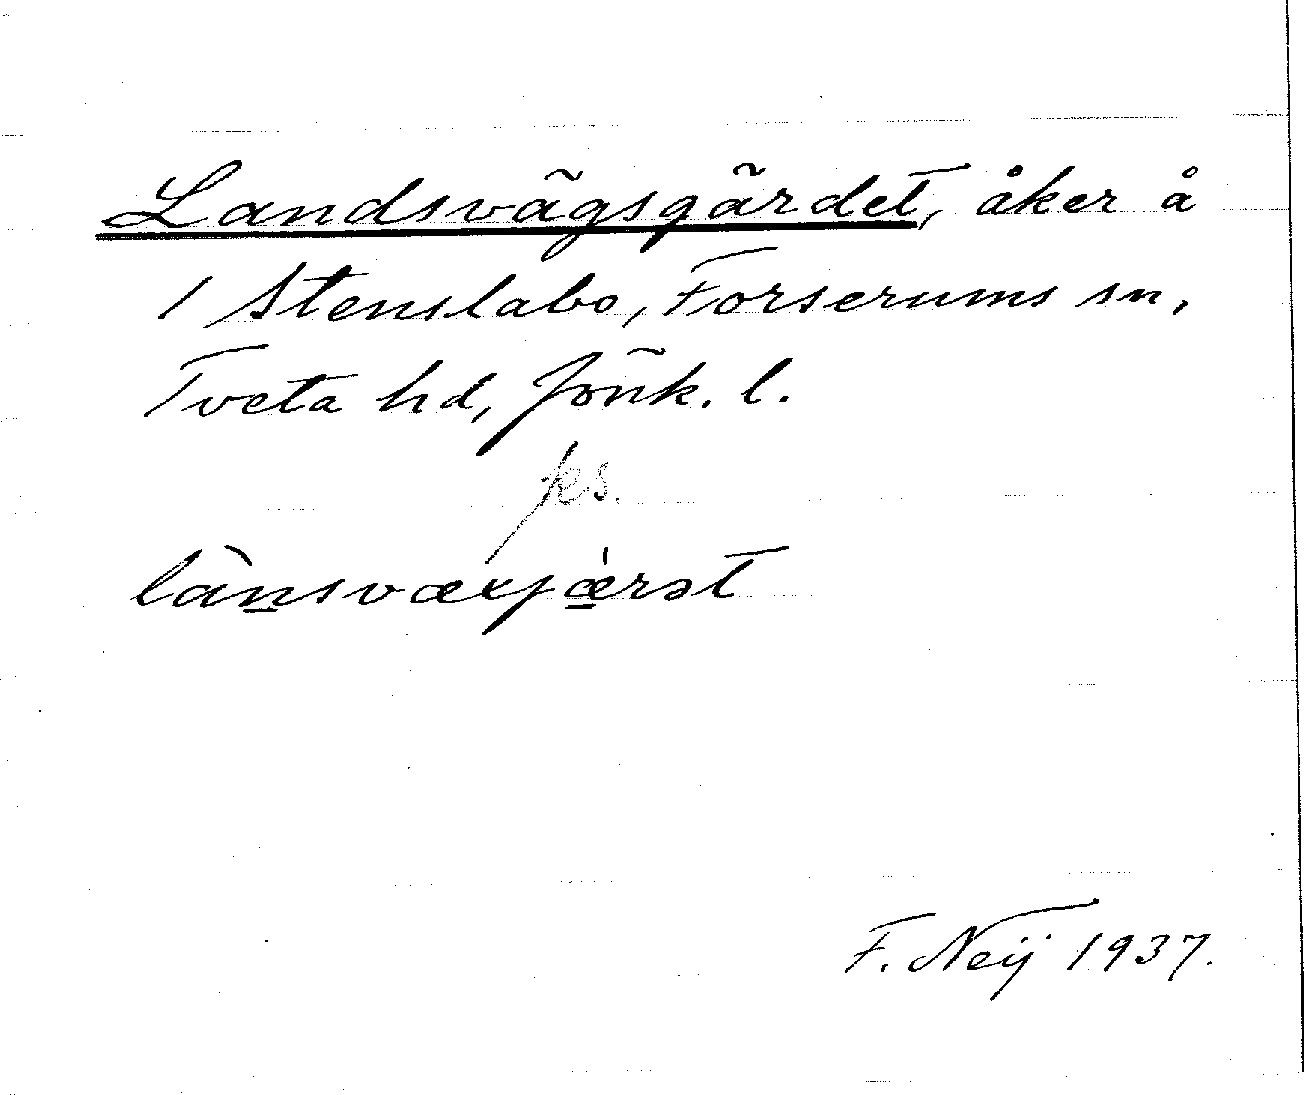 Landsvägsgärdet, åker å
1 Stenslabo, Forserums sn,
Tveta hd, Jönk. l.
ks.
lànsvæxjǽrət
F. Neij 1937.